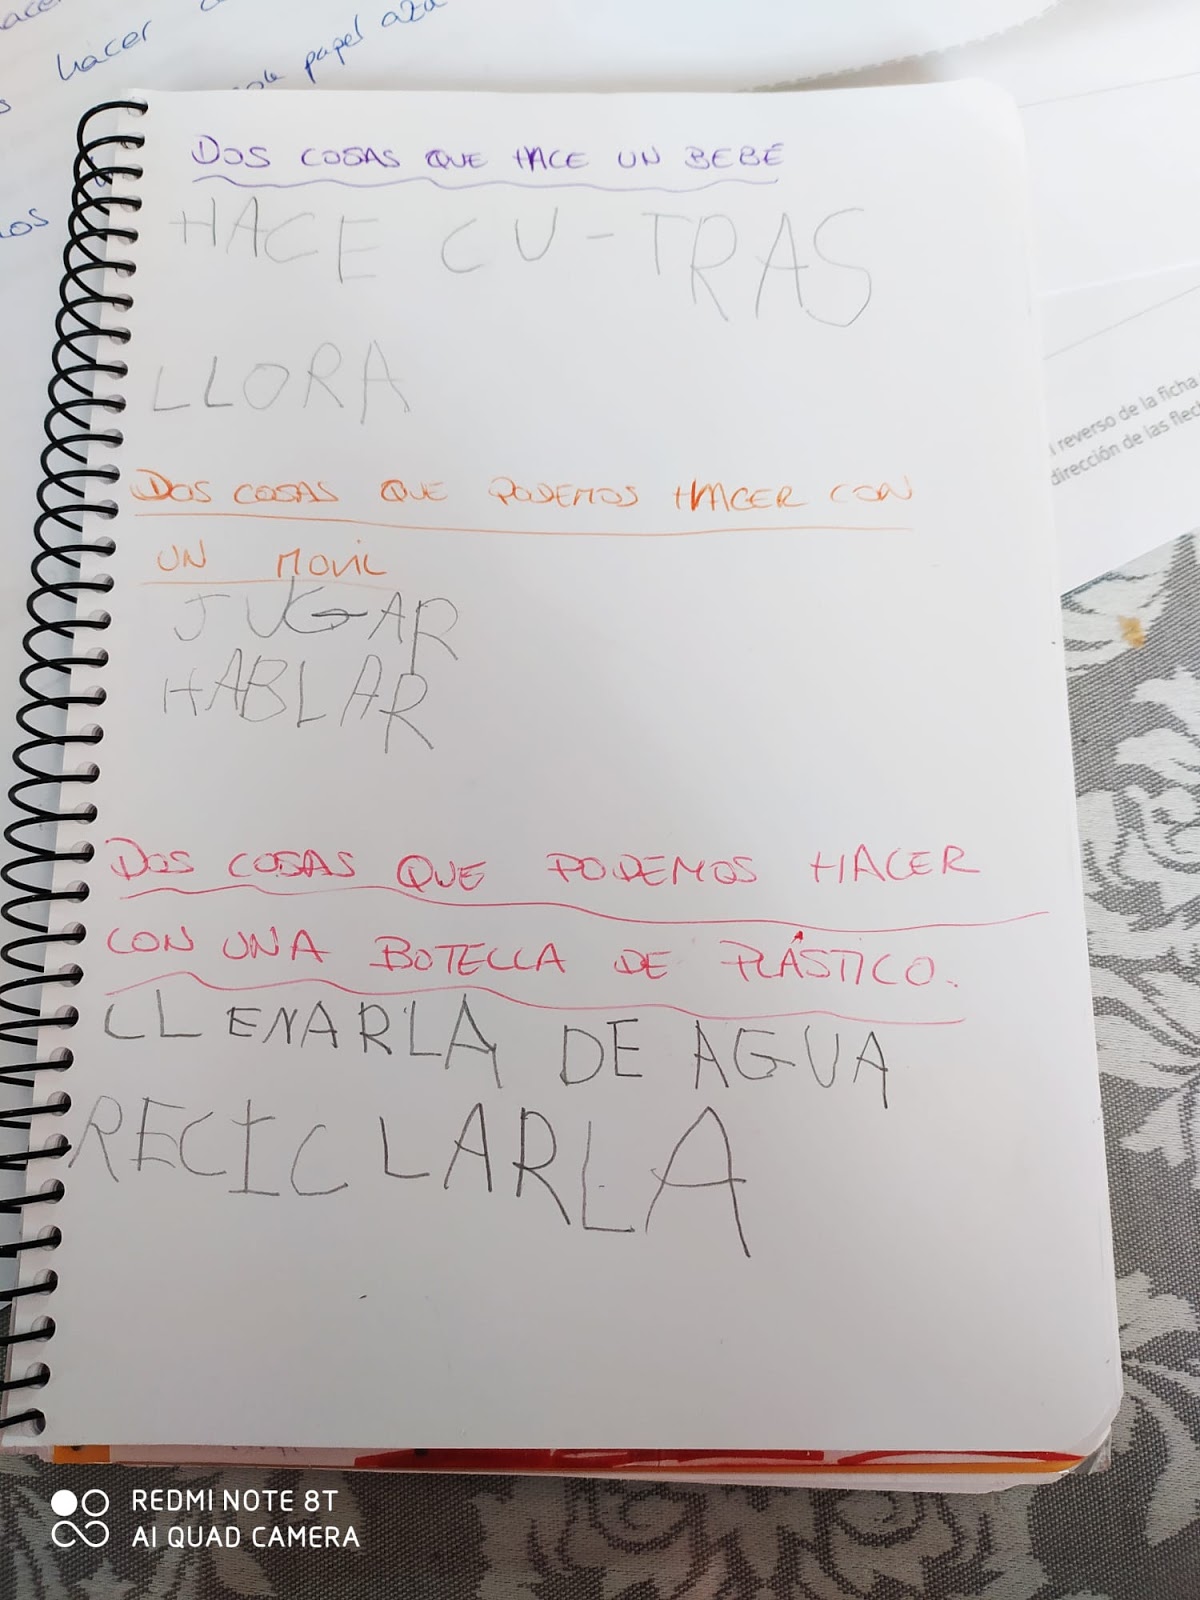 hacer
papel
DOS COSAS QUE HACE UN BEBÉ
HACE CU-TRAS
LLORA
DOS COSAS QUE PODEMOS HACER CON
UN MOVIL
JUGAR
HABLAR
DOS COSAS QUE PODEMOS HACER
CON UNA BOTELLA DE PLÁSTICO.
LLENARLA DE AGUA
RECICLARLA
reverso de la ficha
dirección de las
REDMI NOTE 8T
AI QUAD CAMERA